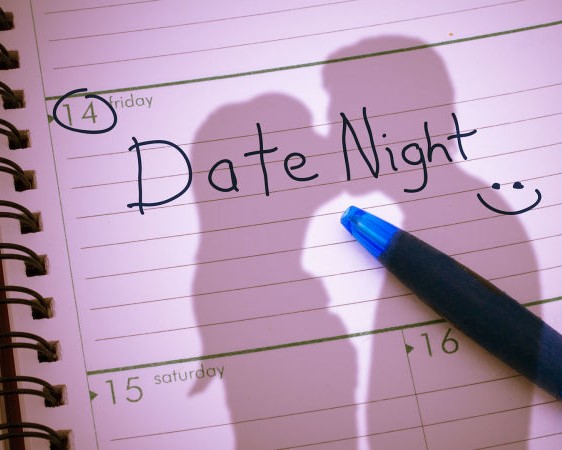 14 friday
Date Night
15 saturday
16